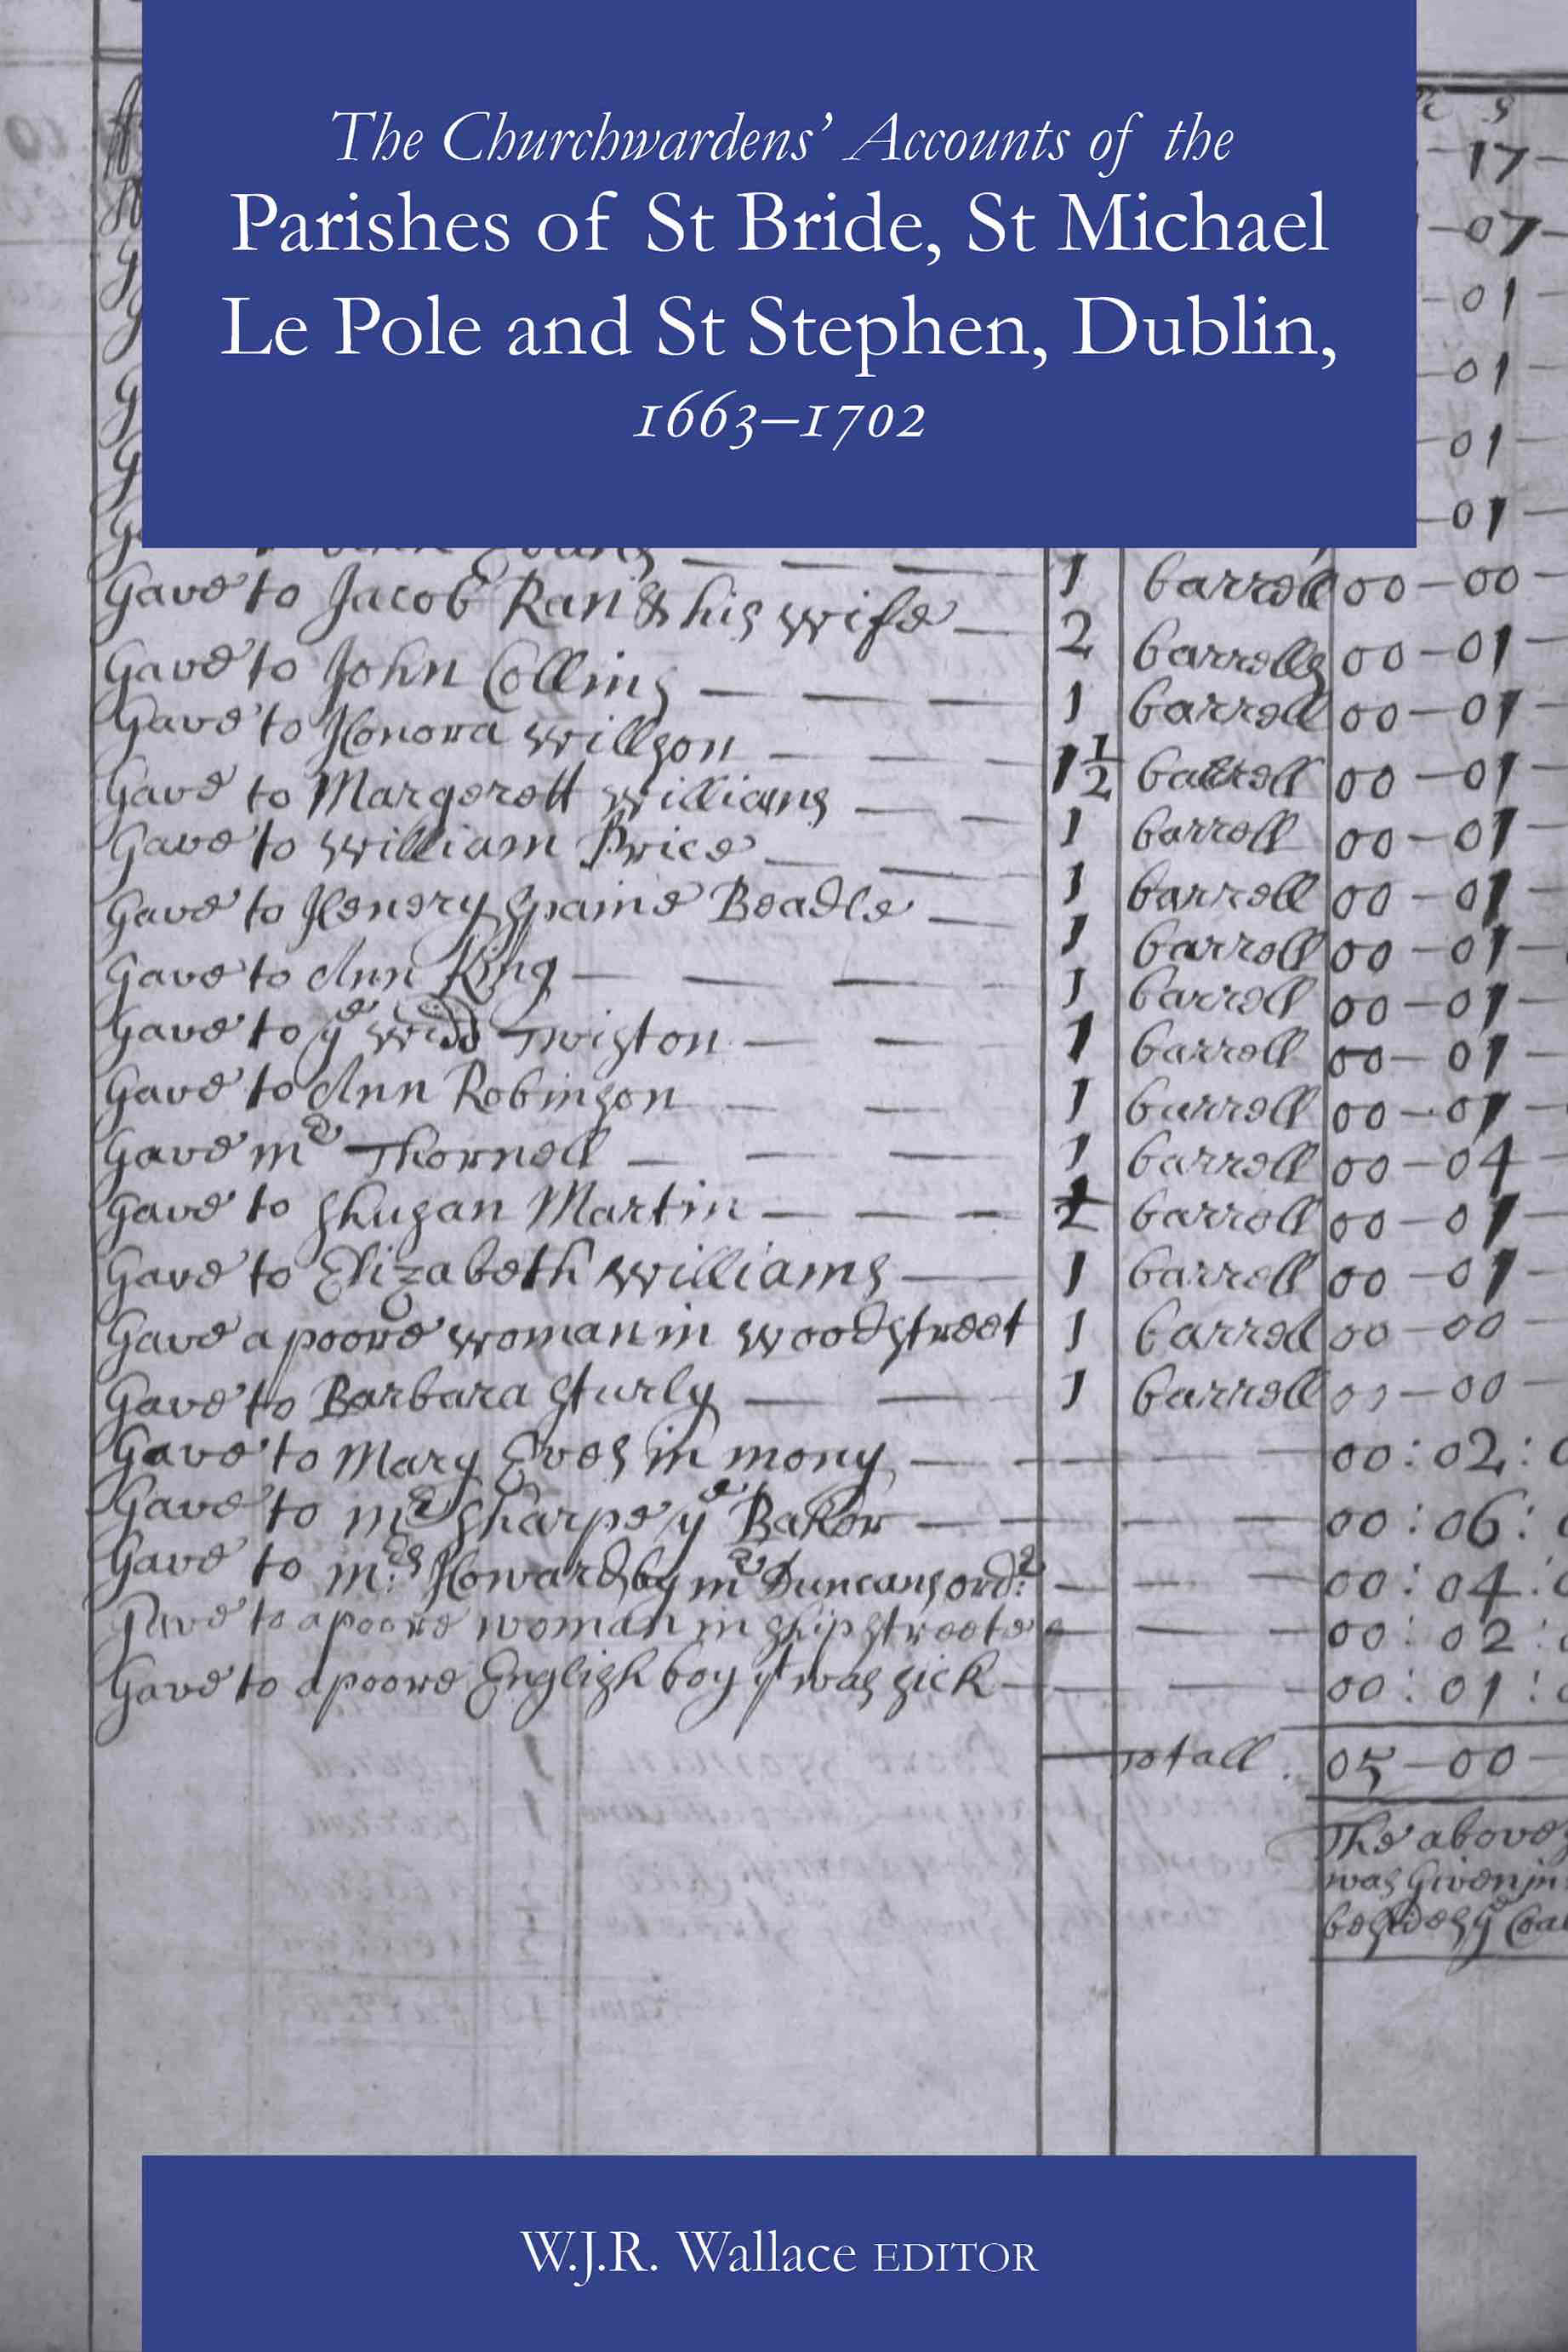 The Churchwardens' Accounts of the
Parishes of St Bride, St Michael
Le Pole and St Stephen, Dublin,
1663–1702
s
17
07
01
01
01
01
Gave to Jacob Ran & his wife 1 barrell 00–00
Gave to John Collins 2 barrells 00–01
Gave to Honora Willson 1 barrell 00–01
Gave to Margerett Williams 1½ barrell 00–01
Gave to William Price 1 barrell 00–01
Gave to Henery Spaine Beadle 1 barrell 00–01
Gave to Ann King 1 barrell 00–01
Gave to ye Widd Twiston 1 barrell 00–01
Gave to Ann Robinson 1 barrell 00–01
Gave mr Thornell 1 barrell 00–01
Gave to Shusan Martin 1 barrell 00–04
Gave to Elizabeth Williams barrell 00–01
Gave a poore woman in Woodstreet 1 barrell 00–01
Gave to Barbara Sturly 1 barrell 00–00
1 barrell 00–00
Gave to Mary Eves in mony 00:02:
Gave to mr Sharpe ye Baker 00:06:
Gave to mrs Howard by mr Duncansord 00:04:
Gave to a poore woman in Shipstreete 00:02:
Gave to a poore English boy yt was sick 00:01:
Totall 05–00
The above
was Given in
besides ye Coal
W.J.R. Wallace EDITOR